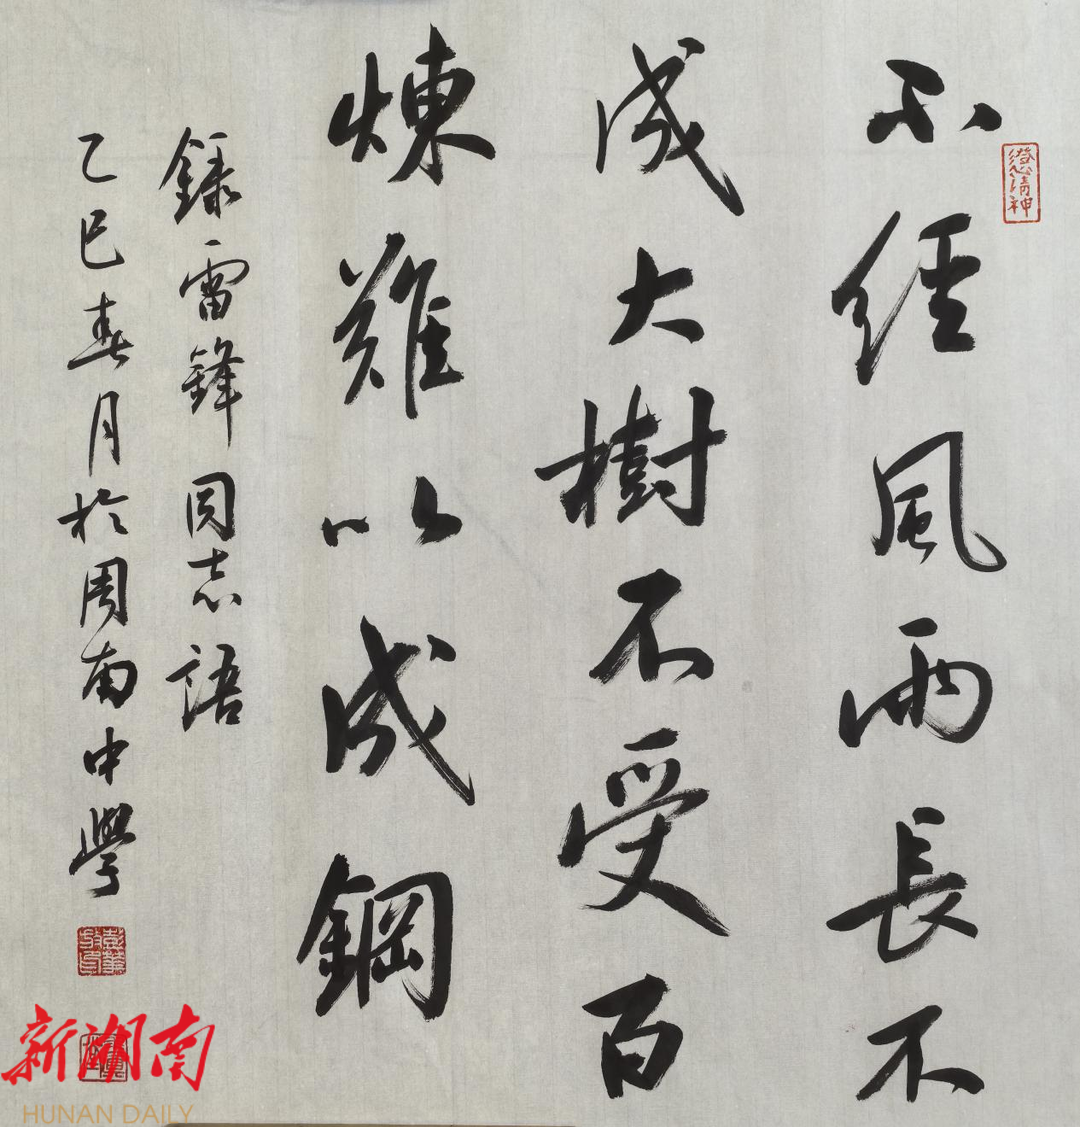 不經風雨長不
成大樹不受百
煉難以成鋼
錄雷鋒同志語
乙巳春月於周南中學
澄心清神
新湖南
HUNAN DAILY